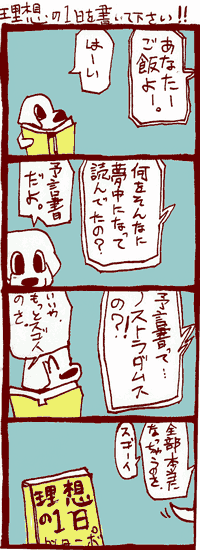 理想の1日を書いて下さい!!
あなたー
ご飯よー。
はーい
何をそんなに
夢中になって
読んでたの?
予言書
だよ。
予言書って…
ノストラダムス
の?!
いいや、
もっとスゴイ
のさ。
全部本当に
なっちゃうのさ
スゴーイ
理想
の1日。